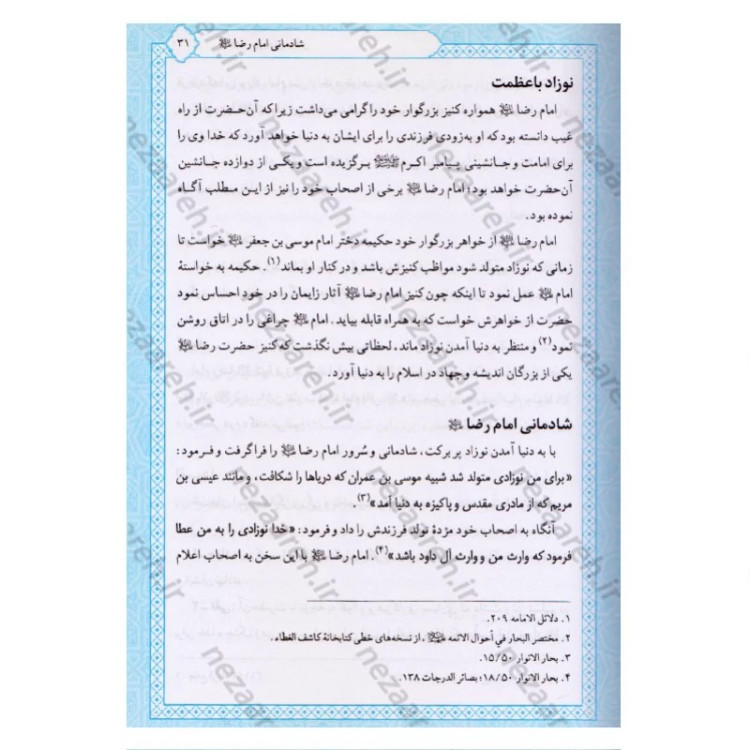 شادمانی امام رضا ﷷ ۳۱
نوزاد با عظمت
امام رضا همواره کنیز بزرگوار خود را گرامی می‌داشت زیرا که آن حضرت از راه
غیب دانسته بود که او به‌زودی فرزندی را برای ایشان به دنیا خواهد آورد که خدا وی را
برای امامت و جانشینی پیامبر اکرم ﷺ برگزیده است و یکی از دوازده جانشین
آن حضرت خواهد بود؛ امام رضا برخی از اصحاب خود را نیز از این مطلب آگاه
نموده بود.
امام رضا از خواهر بزرگوار خود حکیمه دختر امام موسی بن جعفر خواست تا
زمانی که نوزاد متولد شود مواظب کنیزش باشد و در کنار او بماند(۱). حکیمه به خواستهٔ
امام عمل نمود تا اینکه چون کنیز امام رضا آثار زایمان را در خود احساس نمود
حضرت از خواهرش خواست که به همراه قابله بیاید. امام چراغی را در اتاق روشن
نمود(۲) و منتظر به دنیا آمدن نوزاد ماند. لحظاتی بیش نگذشت که کنیز حضرت رضا
یکی از بزرگان اندیشه و جهاد در اسلام را به دنیا آورد.
شادمانی امام رضا
با به دنیا آمدن نوزاد پر برکت، شادمانی و سُرور امام رضا را فرا گرفت و فرمود:
«برای من نوزادی متولد شد شبیه موسی بن عمران که دریاها را شکافت، و مانند عیسی بن
مریم که از مادری مقدس و پاکیزه به دنیا آمد»(۳).
آنگاه به اصحاب خود مژدهٔ تولد فرزندش را داد و فرمود: «خدا نوزادی را به من عطا
فرمود که وارث من و وارث آل داود باشد»(۴). امام رضا با این سخن به اصحاب اعلام
۱. دلائل الامامه ۲۰۹.
۲. مختصر البحار في أحوال الائمه، از نسخه‌های خطی کتابخانهٔ کاشف الغطاء.
۳. بحار الانوار ۱۵/۵۰.
۴. بحار الانوار ۱۸/۵۰؛ بصائر الدرجات ۱۳۸.
nezaareh.ir